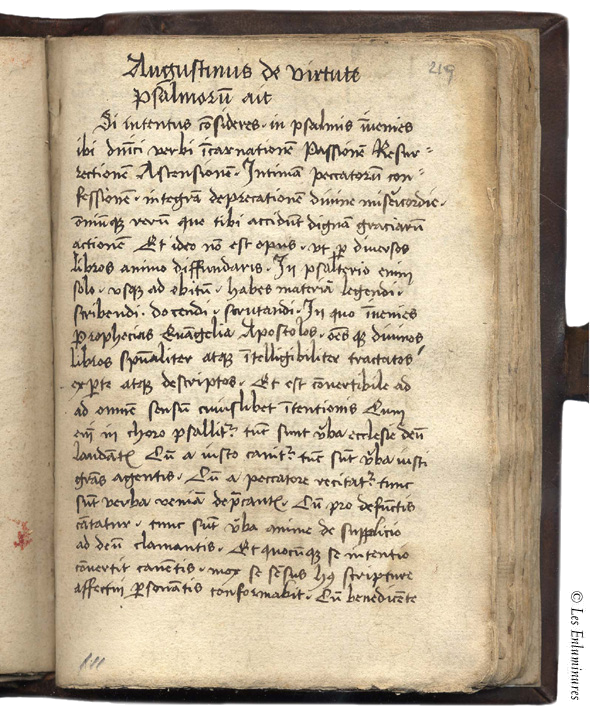 Augustinus de virtute
psalmorū ait
219
Si intentus cōsideres · in psalmis īvenies
ibi dn̄ici verbi īcarnationē Passionē Resur=
rectionē Ascensionē · Intimā peccatorū con=
fessionē · integrā deprecationē divine mis̄ericordie ·
omniūqꝫ verū que tibi accidūt dignā graciarū
actionē Et ideo nō est opus · vt ꝑ diversos
libros animo diffundaris · In psalterio enim
solo · vsqꝫ ad obitū · habes materiā legendi ·
scribendi · docendi · scrutandi · In quo īvenies
Prophecias Evāgelia Apostolos · oēs qꝫ divinos
libros spūaliter atqꝫ ītelligibiliter tractatos
ex ꝑte atqꝫ descriptos · Et est cōvertibile ad
ad omnē sensū cuiuslibet ītentionis Cum
eni in choro psallitr tūc sunt v̄ba ecclesie deū
laudātꝫ Cū a iusto canitr tūc sūt v̄ba iusti
grās agentis · Cū a peccatore recitatr tunc
sūt verba veniā dep̄cantꝫ · Cū pro defūctis
cātatur · tunc sūt v̄ba anime de supplicio
ad deū clamantis · Et quocūqꝫ se intentio
cōvertit canētis · mox se sēsus hꝰ scripture
affectui ꝑsonātis conformabit · Cū benedicēte
© Les Enluminures